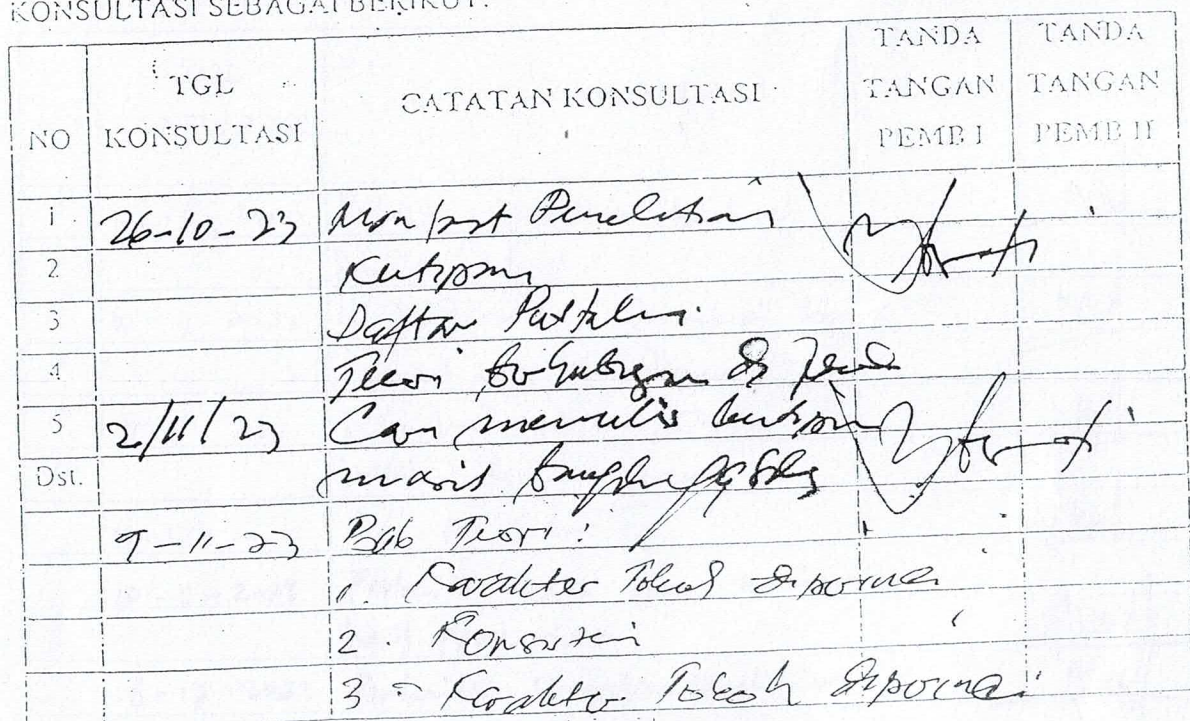 KONSULTASI SEBAGAI BERIKUT:
NO
TGL KONSULTASI
CATATAN KONSULTASI
TANDA TANGAN PEMB I
TANDA TANGAN PEMB II
1 26-10-23 Penelitian
2 Kutipan
3 Daftar Pustaka
4 Teori
5 2/11/23 Cara menulis kutipan
Dst. masih
9-11-23 Bab Teori:
1. Karakter Tokoh
2. Konsistensi
3 = Karakter Tokoh